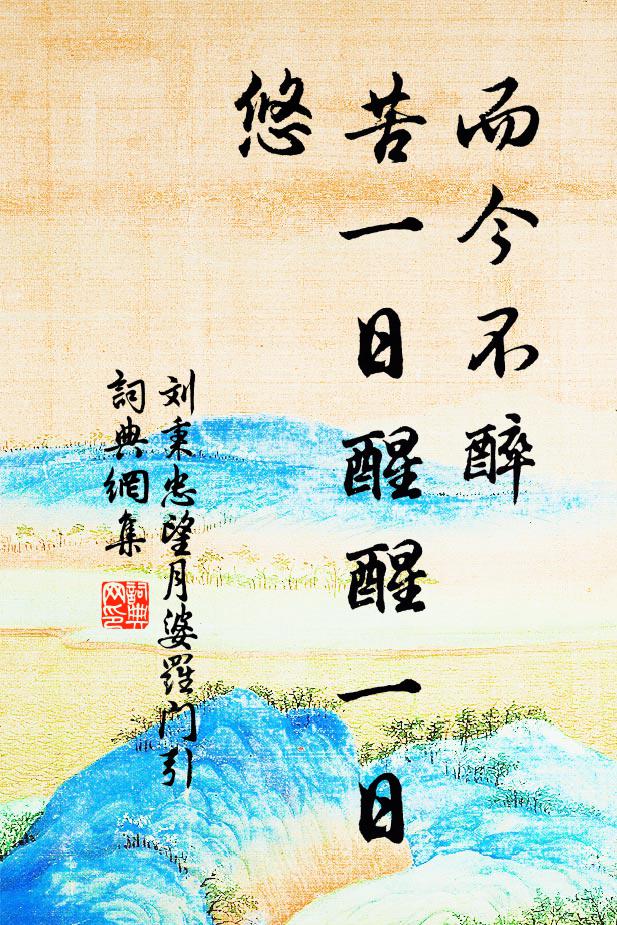 而今不醉
苦一日醒醒一日
悠
刘秉忠望月婆羅门引
詞典網集
詞典
网印